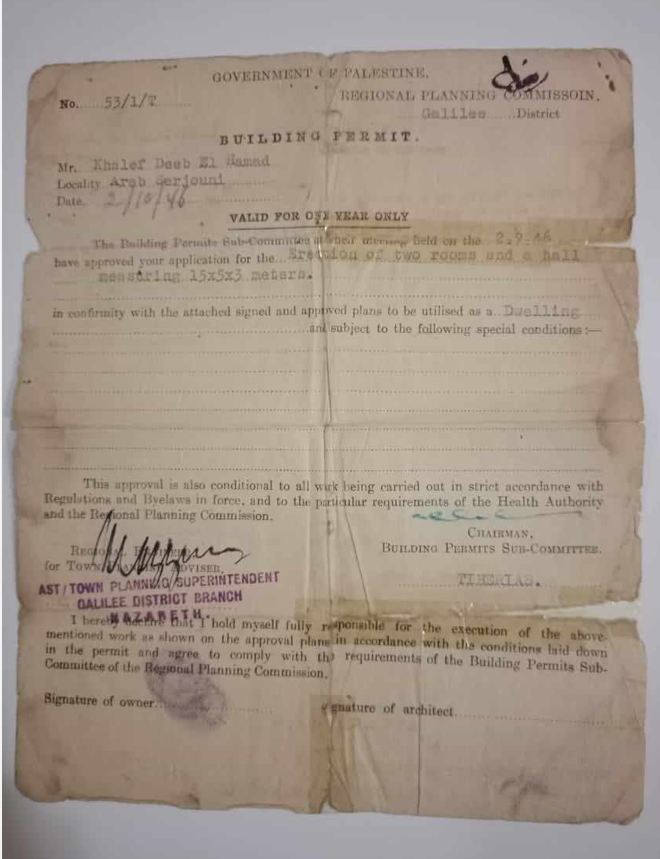 GOVERNMENT OF PALESTINE.
No. 53/1/T
REGIONAL PLANNING COMMISSOIN.
Galilee District
BUILDING PERMIT.
Mr. Khalef Deeb El Hamad
Locality Arab Serjouni
Date. 2/10/46
VALID FOR ONE YEAR ONLY
The Building Permits Sub-Committee at their meeting held on the 2.9.46
have approved your application for the Erection of two rooms and a hall
measuring 15x5x3 meters.
in confirmity with the attached signed and approved plans to be utilised as a Dwelling
and subject to the following special conditions:—
This approval is also conditional to all work being carried out in strict accordance with
Regulations and Byelaws in force, and to the particular requirements of the Health Authority
and the Regional Planning Commission.
CHAIRMAN,
BUILDING PERMITS SUB-COMMITTEE.
TIBERIAS.
REGIONAL
for TOWN ADVISER,
AST/TOWN PLANNING SUPERINTENDENT
GALILEE DISTRICT BRANCH
NAZARETH.
I hereby declare that I hold myself fully responsible for the execution of the above-
mentioned work as shown on the approval plans in accordance with the conditions laid down
in the permit and agree to comply with the requirements of the Building Permits Sub-
Committee of the Regional Planning Commission.
Signature of owner
Signature of architect